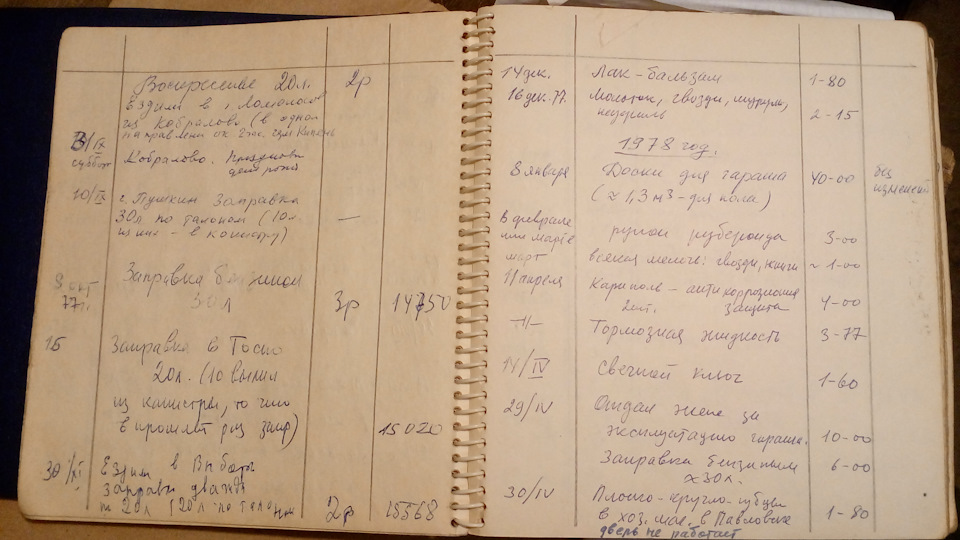 Воскресенье 20л. 2р
Ездили в г. Ломоносов
из Кобралово (в одном
направлении ок.
3/IX
суббот Кобралово. Праздновали
день рожд
10/IX г. Пушкин Заправка
30л по талонам (10л —
из них - в канистру)
Заправка бензином
77г. 30л 3р 14750
15 Заправка в Тосно
20л. (10 вылил
из канистры, то что
в прошлый раз запр) 15020
30/XI Ездили в Выборг
заправл дважды
20л (20л по талонам 2р 15568
14 дек. Лак-бальзам 1-80
16 дек. 77. Молоток, гвозди, шурупы, 2-15
1978 год.
8 января Доски для гаража 40-00 без
(≈1,3 м³ - для пола) изменений
В феврале
или марте рулон рубероида 3-00
март всякая мелочь: гвозди, ~1-00
11 апреля антикоррозионная
2шт. защита 4-00
-11- Тормозная жидкость 3-77
14/IV Свечной ключ 1-60
29/IV Отдал жене за
эксплуатацию гаража. 10-00
Заправка бензином 6-00
≈30л.
30/IV Плоско-кругло-губцы
в хоз. маг. в Павловске 1-80
дверь не работает